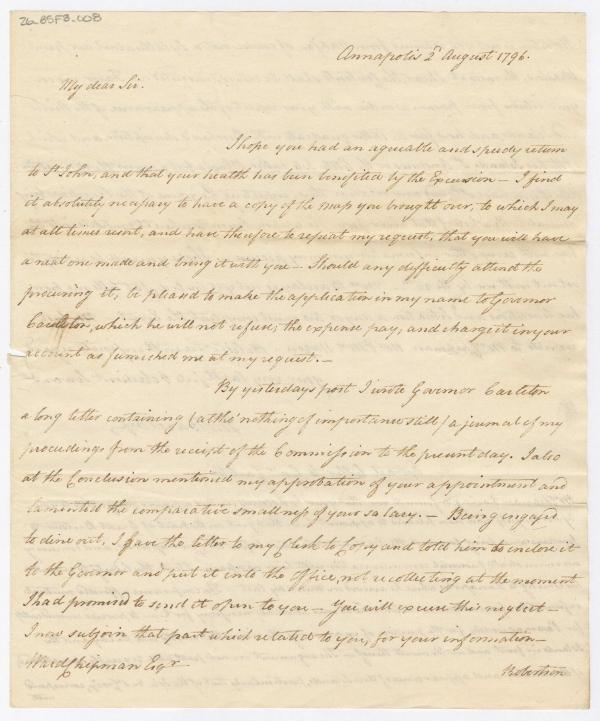 26-85F3-008
Annapolis 2d August 1796.
My dear Sir.
I hope you had an agreeable and speedy return
to St John, and that your health has been benefited by the Excursion — I find
it absolutely necessary to have a copy of the map you brought over, to which I may
at all times resort, and have therefore to repeat my request, that you will have
a neat one made and bring it with you — Should any difficulty attend the
procuring it, be pleased to make the application in my name to Governor
Carleton, which he will not refuse; the expense pay, and charge it in your
account as furnished me at my request. —
By yesterdays post I wrote Governor Carleton
a long letter containing (altho' nothing of importance still) a journal of my
proceedings from the receipt of the Commission to the present day. I also
at the Conclusion mentioned my approbation of your appointment and
lamented the comparative smallness of your salary. — Being engaged
to dine out, I gave the letter to my Clerk to Copy and told him to inclose it
to the Governor and put it into the Office, not recollecting at the moment
I had promised to send it open to you — You will excuse this neglect —
I now subjoin that part which related to you, for your information —
Ward Chipman Esqr
Robertson